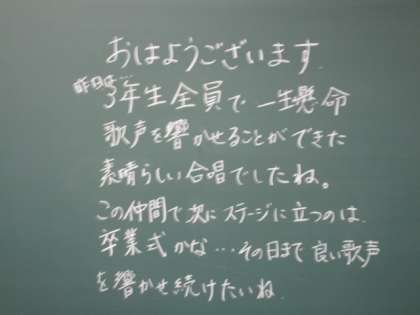 おはようございます.
昨日は…
3年生全員で一生懸命
歌声を響かせることができた
素晴らしい合唱でしたね。
この仲間で次にステージに立つのは.
卒業式かな…その日まで良い歌声
を響かせ続けたいね.